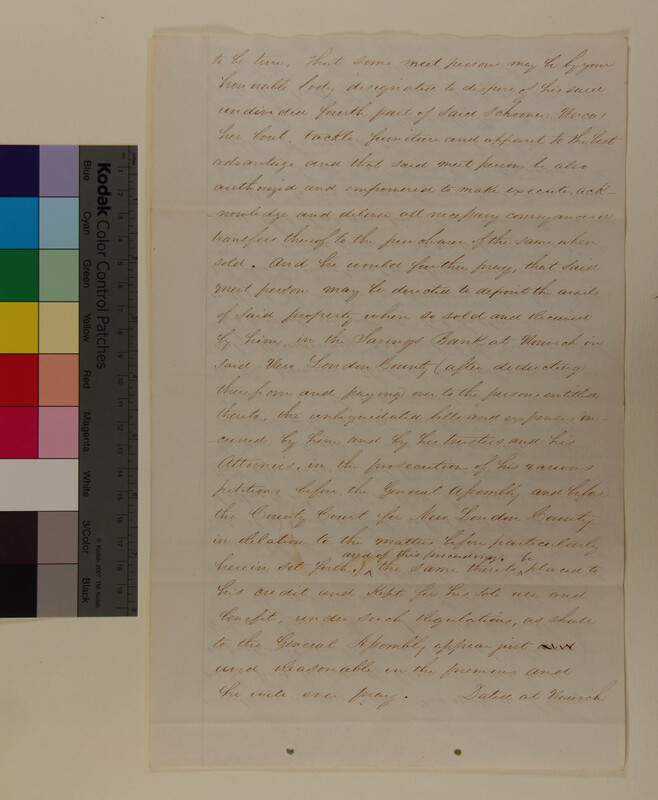 to be true, that some meet person may be by your
honorable body designated to dispose of his said
undivided fourth part of said Schooner Uncas
her boat, tackle furniture and apparel to the best
advantage and that said meet person be also
authorized and empowered to make execute, ack-
nowledge and deliver all necessary conveyances or
transfers thereof to the purchaser of the same when
sold. And he would further pray, that said
meet person may be directed to deposit the avails
of said property when so sold and received
by him, in the Savings Bank at Norwich in
said New London County (after deducting
therefrom and paying over to the persons entitled
thereto, the unliquidated bills and expenses in-
-curred by him and by his trustees and his
Attornies, in the prosecution of his various
petitions before the General Assembly and before
the County Court for New London County
in relation to the matters before particularly
and of this proceeding, be
herein set forth,) the same thereto placed to
his credit and kept for his sole use and
benefit, under such regulations, as shall
to the General Assembly appear just
and reasonable in the premises and
he will ever pray. Dated at Norwich
Kodak
Color Control Patches
Blue
Cyan
Green
Yellow
Red
Magenta
White
3/Color
Black